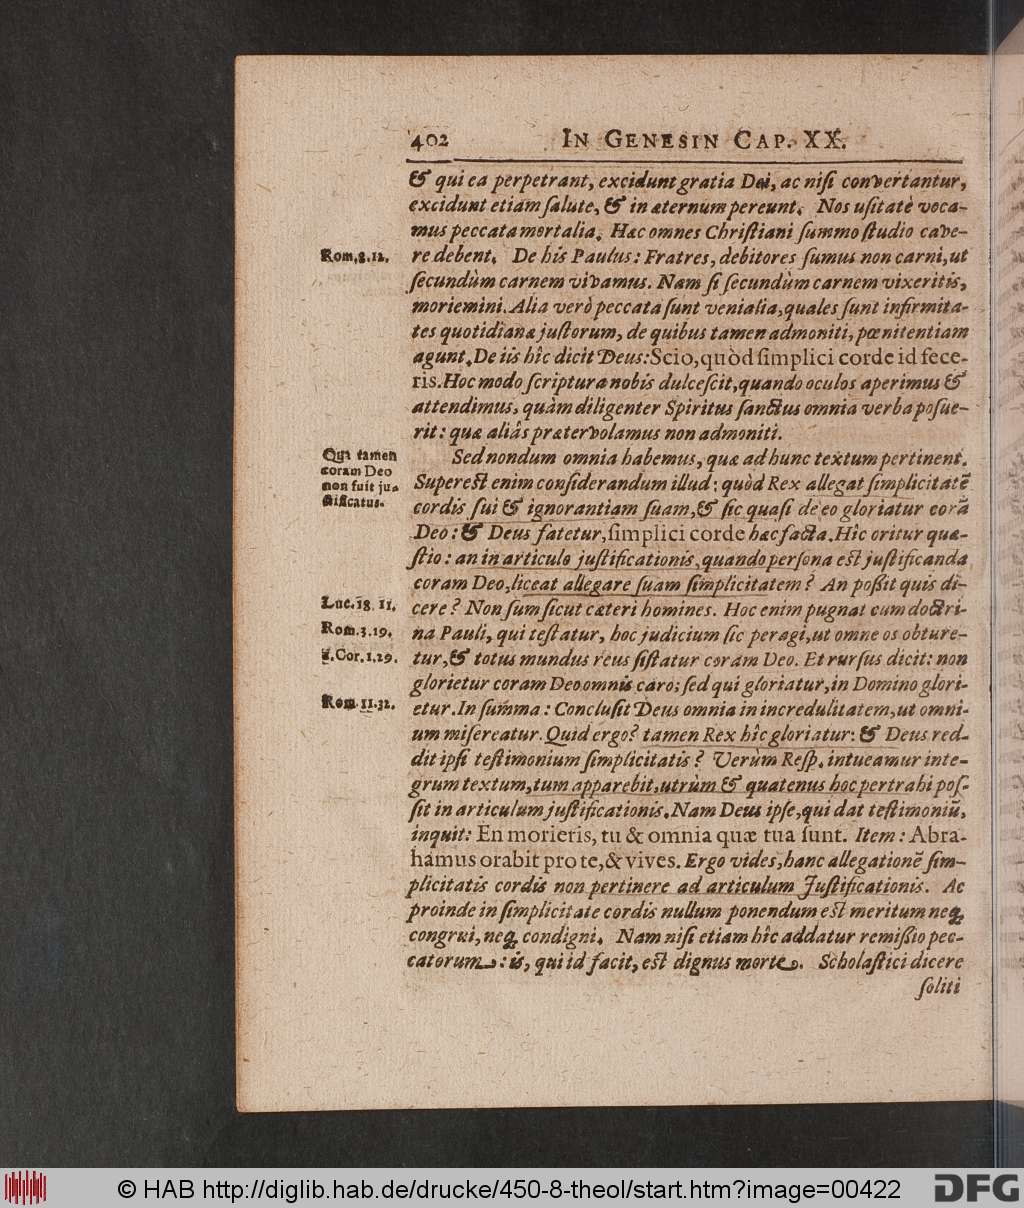 402 IN GENESIN CAP. XX.
& qui ea perpetrant, excidunt gratia Dei, ac nisi convertantur,
excidunt etiam salute, & in æternum pereunt. Nos usitatè voca-
mus peccata mortalia. Hæc omnes Christiani summo studio cave-
Rom. 8. 12.
re debent. De his Paulus: Fratres, debitores sumus non carni, ut
secundùm carnem vivamus. Nam si secundùm carnem vixeritis,
moriemini. Alia verò peccata sunt venialia, quales sunt infirmita-
tes quotidianæ justorum, de quibus tamen admoniti, pœnitentiam
agunt. De iis hîc dicit Deus: Scio, quòd simplici corde id fece-
ris. Hoc modo scripturæ nobis dulcescit, quando oculos aperimus &
attendimus, quàm diligenter Spiritus sanctus omnia verba posue-
rit: quæ aliâs prætervolamus non admoniti.
Qui tamen
coram Deo
non fuit ju-
stificatus.
Sed nondum omnia habemus, quæ ad hunc textum pertinent.
Superest enim considerandum illud: quòd Rex allegat simplicitatẽ
cordis sui & ignorantiam suam, & sic quasi de eo gloriatur corã
Deo: & Deus fatetur, simplici corde hæc facta. Hîc oritur quæ-
stio: an in articulo justificationis, quando persona est justificanda
coram Deo, liceat allegare suam simplicitatem? An poßit quis di-
Luc. 18. 11.
cere? Non sum sicut cæteri homines. Hoc enim pugnat cum doctri-
Rom. 3. 19.
na Pauli, qui testatur, hoc judicium sic peragi, ut omne os obture-
1. Cor. 1. 29.
tur, & totus mundus reus sistatur coram Deo. Et rursus dicit: non
glorietur coram Deo omnis caro; sed qui gloriatur, in Domino glori-
Rom. 11. 32.
etur. In sum̃ma: Conclusit Deus omnia in incredulitatem, ut omni-
um misereatur. Quid ergo? tamen Rex hîc gloriatur: & Deus red-
dit ipsi testimonium simplicitatis? Verùm Resp. intueamur inte-
grum textum, tum apparebit, utrùm & quatenus hoc pertrahi pos-
sit in articulum justificationis. Nam Deus ipse, qui dat testimoniũ,
inquit: En morieris, tu & omnia quæ tua sunt. Item: Abra-
hamus orabit pro te, & vives. Ergo vides, hanc allegationẽ sim-
plicitatis cordis non pertinere ad articulum Justificationis. Ac
proinde in simplicitate cordis nullum ponendum est meritum neq;
congrui, neq; condigni. Nam nisi etiam hîc addatur remißio pec-
catorum: is, qui id facit, est dignus morte. Scholastici dicere
soliti
© HAB http://diglib.hab.de/drucke/450-8-theol/start.htm?image=00422
DFG